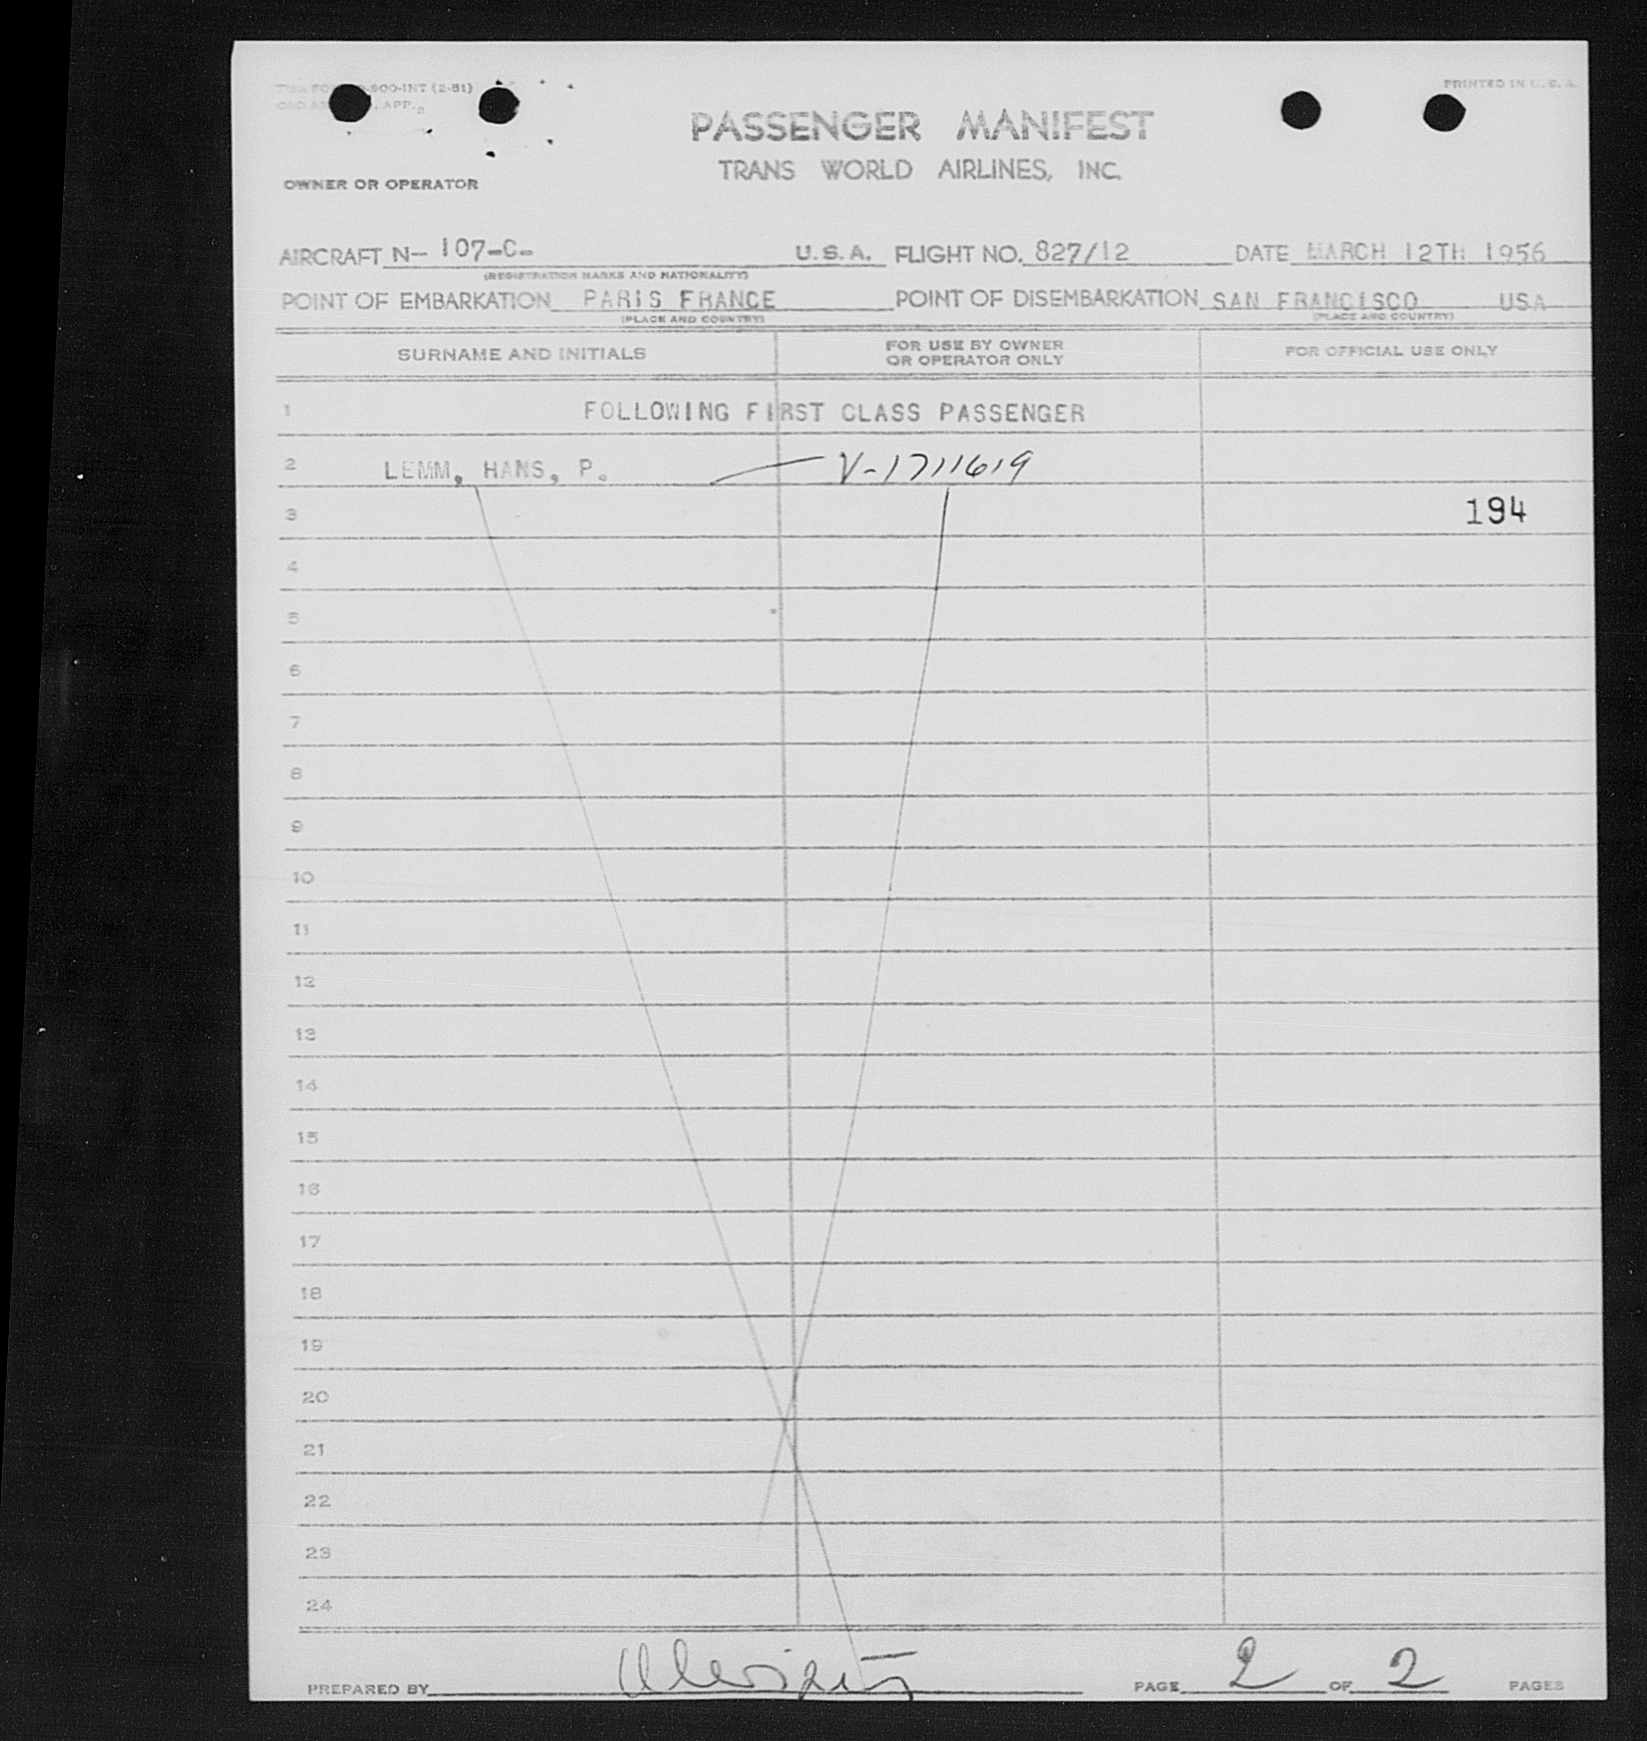 -800-INT (2-51)
APP.
PRINTED IN U.S.A.
PASSENGER MANIFEST
TRANS WORLD AIRLINES, INC.
OWNER OR OPERATOR
AIRCRAFT N- 107-C- U.S.A. FLIGHT NO. 827/12 DATE MARCH 12TH 1956
(REGISTRATION MARKS AND NATIONALITY)
POINT OF EMBARKATION PARIS FRANCE POINT OF DISEMBARKATION SAN FRANCISCO USA
(PLACE AND COUNTRY) (PLACE AND COUNTRY)
SURNAME AND INITIALS FOR USE BY OWNER OR OPERATOR ONLY FOR OFFICIAL USE ONLY
1 FOLLOWING FIRST CLASS PASSENGER
2 LEMM, HANS, P. V-1711619
3 194
4
5
6
7
8
9
10
11
12
13
14
15
16
17
18
19
20
21
22
23
24
PREPARED BY PAGE 2 OF 2 PAGES